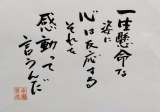 一生懸命な
姿に
心は反応する
それを
感動って
言うんだ